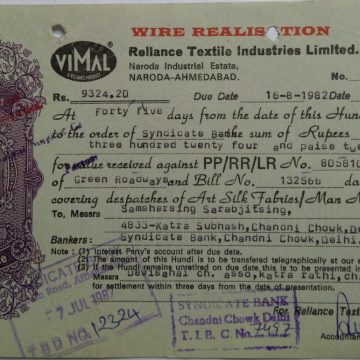 WIRE REALISATION
VIMAL
A RELIANCE PRODUCT
Reliance Textile Industries Limited.
Naroda Industrial Estate,
NARODA-AHMEDABAD.
Rs. 9324.20 Due Date 16-8-1982
At forty five days from the date of this Hun
to the order of Syndicate Bank the sum of Rupees
three hundred twenty four and paise tw
for value received against PP/RR/LR No. 805810
of Green Roadways and Bill No. 132566 da
covering despatches of Art Silk Fabrics/Man M
To, Messrs Samshersing Sarabjitsing,
4833-Katra Subhash, Chandni Chowk, De
Bankers: Syndicate Bank, Chandni Chowk, Delhi
Note: (1) Interest Party's account after due date.
(2) The amount of this Hundi is to be transferred telegraphically at our e
(3) If the Hundi remains unretired on due date, this is to be presented in
Messrs
for settlement within three days from the date of presentation.
For Reliance Textil
Accountant
7 JUL 1982
TBD NO. 12324
SYNDICATE BANK
Chandni Chowk Delhi
T. I. B. C. No.